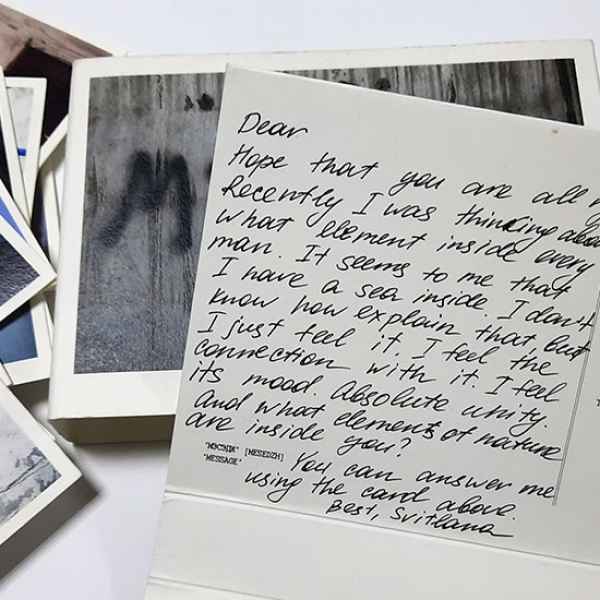 M
Dear
Hope that you are all
Recently I was thinking about
what element inside every
man. It seems to me that
I have a sea inside. I don't
know how explain that but
I just feel it. I feel the
connection with it. I feel
its mood. Absolute unity.
And what elements of nature
are inside you?
[MESEDZH]
"MESSAGE"
You can answer me
using the card above.
Best, Svitlana